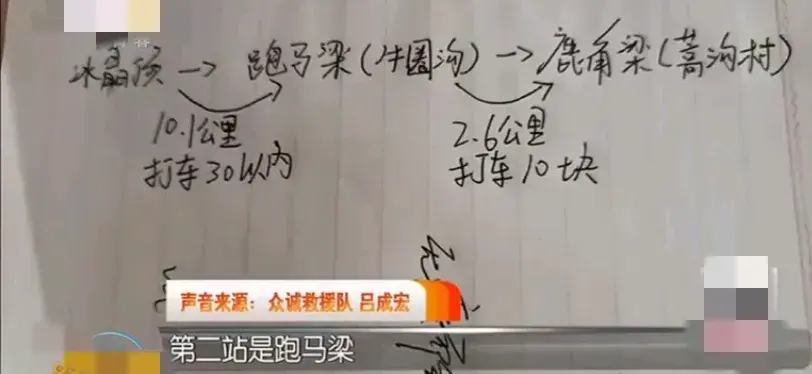 冰晶顶→跑马梁(牛圈沟)→鹿角梁(蒿沟村)
10.1公里
打车30以内
2.6公里
打车10块
声音来源：众诚救援队 吕成宏
第二站是跑马梁